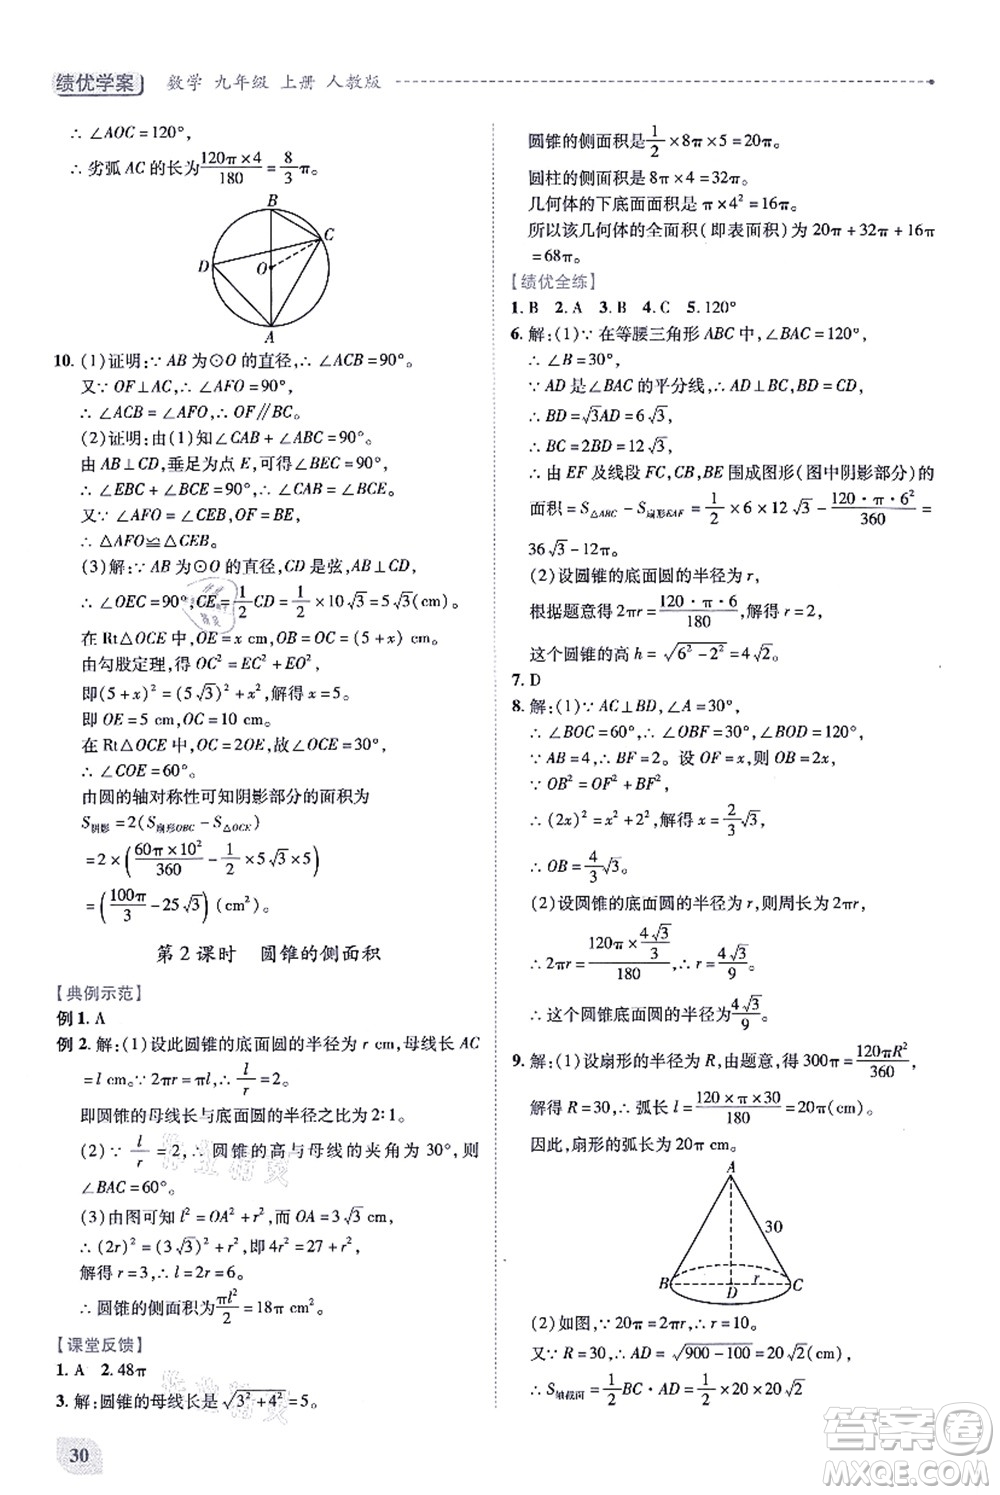 绩优学案 数学 九年级 上册 人教版
∴ ∠AOC=120°,
∴ 劣弧 AC 的长为 120π×4/180 = 8/3 π。
B
C
D
O
A
10. (1)证明:∵ AB 为⊙O 的直径,∴ ∠ACB=90°。
又∵ OF⊥AC,∴ ∠AFO=90°,
∴ ∠ACB=∠AFO,∴ OF∥BC。
(2)证明:由(1)知∠CAB+∠ABC=90°。
由 AB⊥CD,垂足为点 E,可得∠BEC=90°,
∴ ∠EBC+∠BCE=90°,∴ ∠BCE=∠CAB。
又∵ ∠AFO=∠CEB,OF=BE,
∴ △AFO≌△CEB。
(3)解:∵ AB 为⊙O 的直径,CD 是弦,AB⊥CD,
∴ ∠OEC=90°,CE=1/2 CD=1/2×10√3=5√3(cm)。
在 Rt△OCE 中,OE=x cm,OB=OC=(5+x)cm,
由勾股定理,得 OC²=EC²+EO²,
即(5+x)²=(5√3)²+x²,解得 x=5。
即 OE=5 cm,OC=10 cm。
在 Rt△OCE 中,OC=2OE,故∠OCE=30°,
∴ ∠COE=60°。
由圆的轴对称性可知阴影部分的面积为
S阴影=2(S扇形OBC−S△OCE)
=2×(60π×10²/360−1/2×5√3×5)
=(100π/3−25√3)(cm²)。
第 2 课时 圆锥的侧面积
【典例示范】
例 1. A
例 2. 解:(1)设此圆锥的底面圆的半径为 r cm,母线长 AC
=l cm。∵ 2πr=πl,∴ l/r=2。
即圆锥的母线长与底面圆的半径之比为 2∶1。
(2)∵ l/r=2,∴ 圆锥的高与母线的夹角为 30°,则
∠BAC=60°。
(3)由图可知 l²=OA²+r²,而 OA=3√3 cm,
∴ (2r)²=(3√3)²+r²,即 4r²=27+r²,
解得 r=3,∴ l=2r=6。
∴ 圆锥的侧面积为 πl²/2=18π(cm²)。
【课堂反馈】
1. A 2. 48π
3. 解:圆锥的母线长是 √(3²+4²)=5。
30
圆锥的侧面积是 1/2×8π×5=20π。
圆柱的侧面积是 8π×4=32π。
几何体的下底面面积是 π×4²=16π。
所以该几何体的全面积(即表面积)为 20π+32π+16π
=68π。
【绩优全练】
1. B 2. A 3. B 4. C 5. 120°
6. 解:(1)∵ 在等腰三角形 ABC 中,∠BAC=120°,
∴ ∠B=30°,
∵ AD 是∠BAC 的平分线,∴ AD⊥BC,BD=CD,
∴ BD=√3AD=6√3,
∴ BC=2BD=12√3,
∴ 由 EF 及线段 FC,CB,BE 围成图形(图中阴影部分)的
面积=S△ABC−S扇形EAF=1/2×6×12√3−120·π·6²/360=
36√3−12π。
(2)设圆锥的底面圆的半径为 r,
根据题意得 2πr=120·π·6/180,解得 r=2,
这个圆锥的高 h=√(6²−2²)=4√2。
7. D
8. 解:(1)∵ AC⊥BD,∠A=30°,
∴ ∠BOC=60°,∴ ∠OBF=30°,∠BOD=120°,
∵ AB=4,∴ BF=2。设 OF=x,则 OB=2x,
∵ OB²=OF²+BF²,
∴ (2x)²=x²+2²,即 3x²=4,解得 x=2/3√3,
∴ OB=4/3√3。
(2)设圆锥的底面圆的半径为 r,则周长为 2πr,
∴ 2πr=120π×4√3/3/180,∴ r=4√3/9。
∴ 这个圆锥底面圆的半径为 4√3/9。
9. 解:(1)设扇形的半径为 R,由题意,得 300π=120πR²/360,
解得 R=30,∴ 弧长 l=120×π×30/180=20π(cm)。
因此,扇形的弧长为 20π cm。
A
30
B
D
r
C
(2)如图,∵ 20π=2πr,∴ r=10。
又∵ R=30,∴ AD=√(900−100)=20√2(cm),
∴ S轴截面=1/2BC·AD=1/2×2×10×20√2
答案圈
MXQE.COM